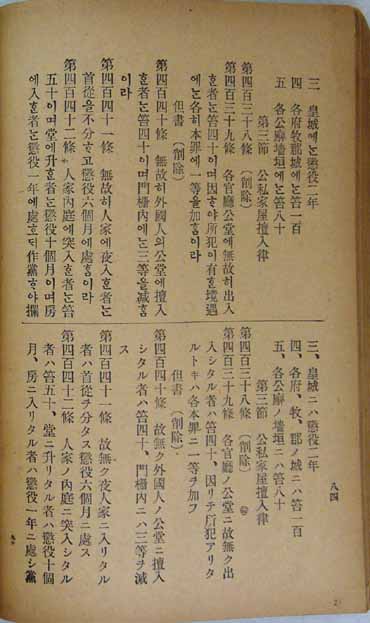 三 皇城에ᄂᆞᆫ懲役二年
四 各府牧郡城에ᄂᆞᆫ笞一百
五 各公廨墻垣에ᄂᆞᆫ笞八十
第三節 公私家屋擅入律
第四百三十八條 (削除)
第四百三十九條 各官廳公堂에無故히出入
ᄒᆞᆫ者ᄂᆞᆫ笞四十이며因ᄒᆞ야所犯이有ᄒᆞᆫ境遇
에ᄂᆞᆫ各히本罪에一等을加ᄒᆞᆷ이라
但書 (削除)
第四百四十條 無故히外國人의公堂에擅入
ᄒᆞᆫ者ᄂᆞᆫ笞四十이며門柵內에ᄂᆞᆫ三等을減ᄒᆞᆷ
이라
第四百四十一條 無故히人家에夜入ᄒᆞᆫ者ᄂᆞᆫ
首從을不分ᄒᆞ고懲役六個月에處ᄒᆞᆷ이라
第四百四十二條 人家內庭에突入ᄒᆞᆫ者ᄂᆞᆫ笞
五十이며堂에升ᄒᆞᆫ者ᄂᆞᆫ懲役十個月이며房
에入ᄒᆞᆫ者ᄂᆞᆫ懲役一年에處호ᄃᆡ作黨ᄒᆞ야攔
八四
三、皇城ニハ懲役二年
四、各府、牧、郡ノ城ニハ笞一百
五、各公廨ノ墻垣ニハ笞八十
第三節 公私家屋擅入律
第四百三十八條 (削除)
第四百三十九條 各官廳ノ公堂ニ故無ク出
入シタル者ハ笞四十、因リテ所犯アリタ
ルトキハ各本罪ニ一等ヲ加フ
但書 (削除)
第四百四十條 故無ク外國人ノ公堂ニ擅入
シタル者ハ笞四十、門柵內ニハ三等ヲ減
ス
第四百四十一條 故無ク夜人家ニ入リタル
者ハ首從ヲ分タス懲役六個月ニ處ス
第四百四十二條 人家ノ內庭ニ突入シタル
者ハ笞五十、堂ニ升リタル者ハ懲役十個
月、房ニ入リタル者ハ懲役一年ニ處シ黨